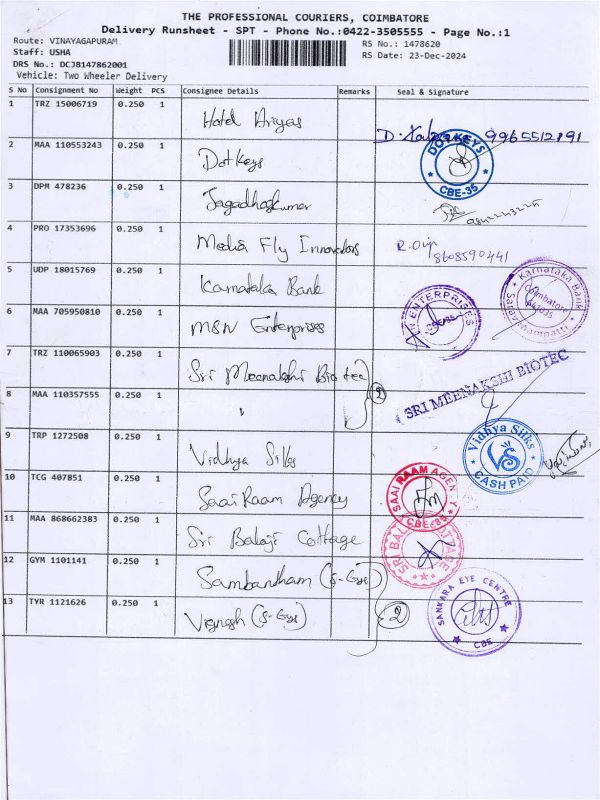 THE PROFESSIONAL COURIERS, COIMBATORE
Delivery Runsheet - SPT - Phone No.:0422-3505555 - Page No.:1
Route: VINAYAGAPURAM
RS No.: 1478620
Staff: USHA
RS Date: 23-Dec-2024
DRS No.: DCJB147862001
Vehicle: Two Wheeler Delivery
S No Consignment No Weight PCS Consignee Details Remarks Seal & Signature
1 TRZ 15006719 0.250 1 Hotel Ariyas
9965512191
2 MAA 110553243 0.250 1 Dotkeys
DOTKEYS CBE-35
3 DPM 478236 0.250 1 Jagadhaskumar
4 PRO 17353696 0.250 1 Media Fly Innovators
8608590441
5 UDP 18015769 0.250 1 Karnataka Bank
Karnataka Bank Coimbatore 641035 Saravanampatti
6 MAA 705950810 0.250 1 M&N Enterprises
ENTERPRISES CBE-35
7 TRZ 110065903 0.250 1 Sri Meenakshi Bio tec
8 MAA 110357555 0.250 1 "
2
SRI MEENAKSHI BIOTEC
9 TRP 1272508 0.250 1 Vidhya Silks
Vidhya Silks VS CASH PAID
10 TCG 407851 0.250 1 Saai Raam Agency
SAAI RAAM AGENCY CBE-35
11 MAA 868662383 0.250 1 Sri Balaji Cottage
SRI BALAJI COTTAGE
12 GYM 1101141 0.250 1 Sambantham (S-Eye)
13 TYR 1121626 0.250 1 Vignesh (S-Eye)
2
SANKARA EYE CENTRE CBE